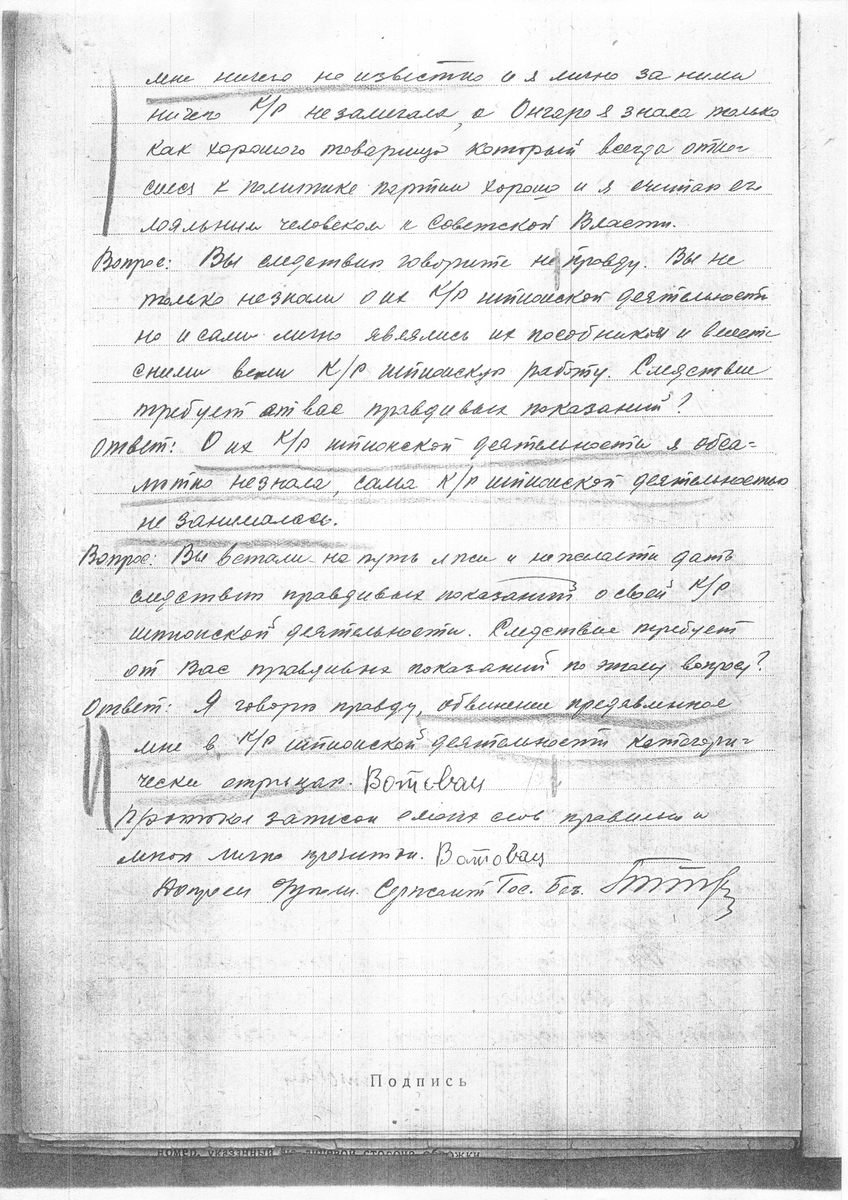 мне ничего не известно и я лично за ними
ничего К/Р незамечала, а Онгаро я знала только
как хорошого товарища который всегда относ
сился к политике партии хорошо и я считаю его
лояльным человеком к Советской Власти.
Вопрос: Вы следствию говорите не правду. Вы не
только незнали о их К/Р шпионской деятельности
но и сами лично являлись их пособником и вместе
сними вели К/Р шпионскую работу. Следствие
требует от вас правдивых показаний?
Ответ: О их К/Р шпионской деятельности я обса=
лютно незнала, сама К/Р шпионской деятельностью
не занималась.
Вопрос: Вы встали на путь лжи и нежелаете дать
следствию правдивых показаний о своей К/Р
шпионской деятельности. Следствие требует
от Вас правдивых показаний по этому вопросу?
Ответ: Я говорю правду, обвинение предявленное
мне в К/Р шпионской деятельности категори-
чески отрицаю.
Протокол записан с моих слов правильно и
мной лично прочитан.
Допросил Сержант Гос. Без.
Подпись
номер, указанный на лицевой стороне обложки